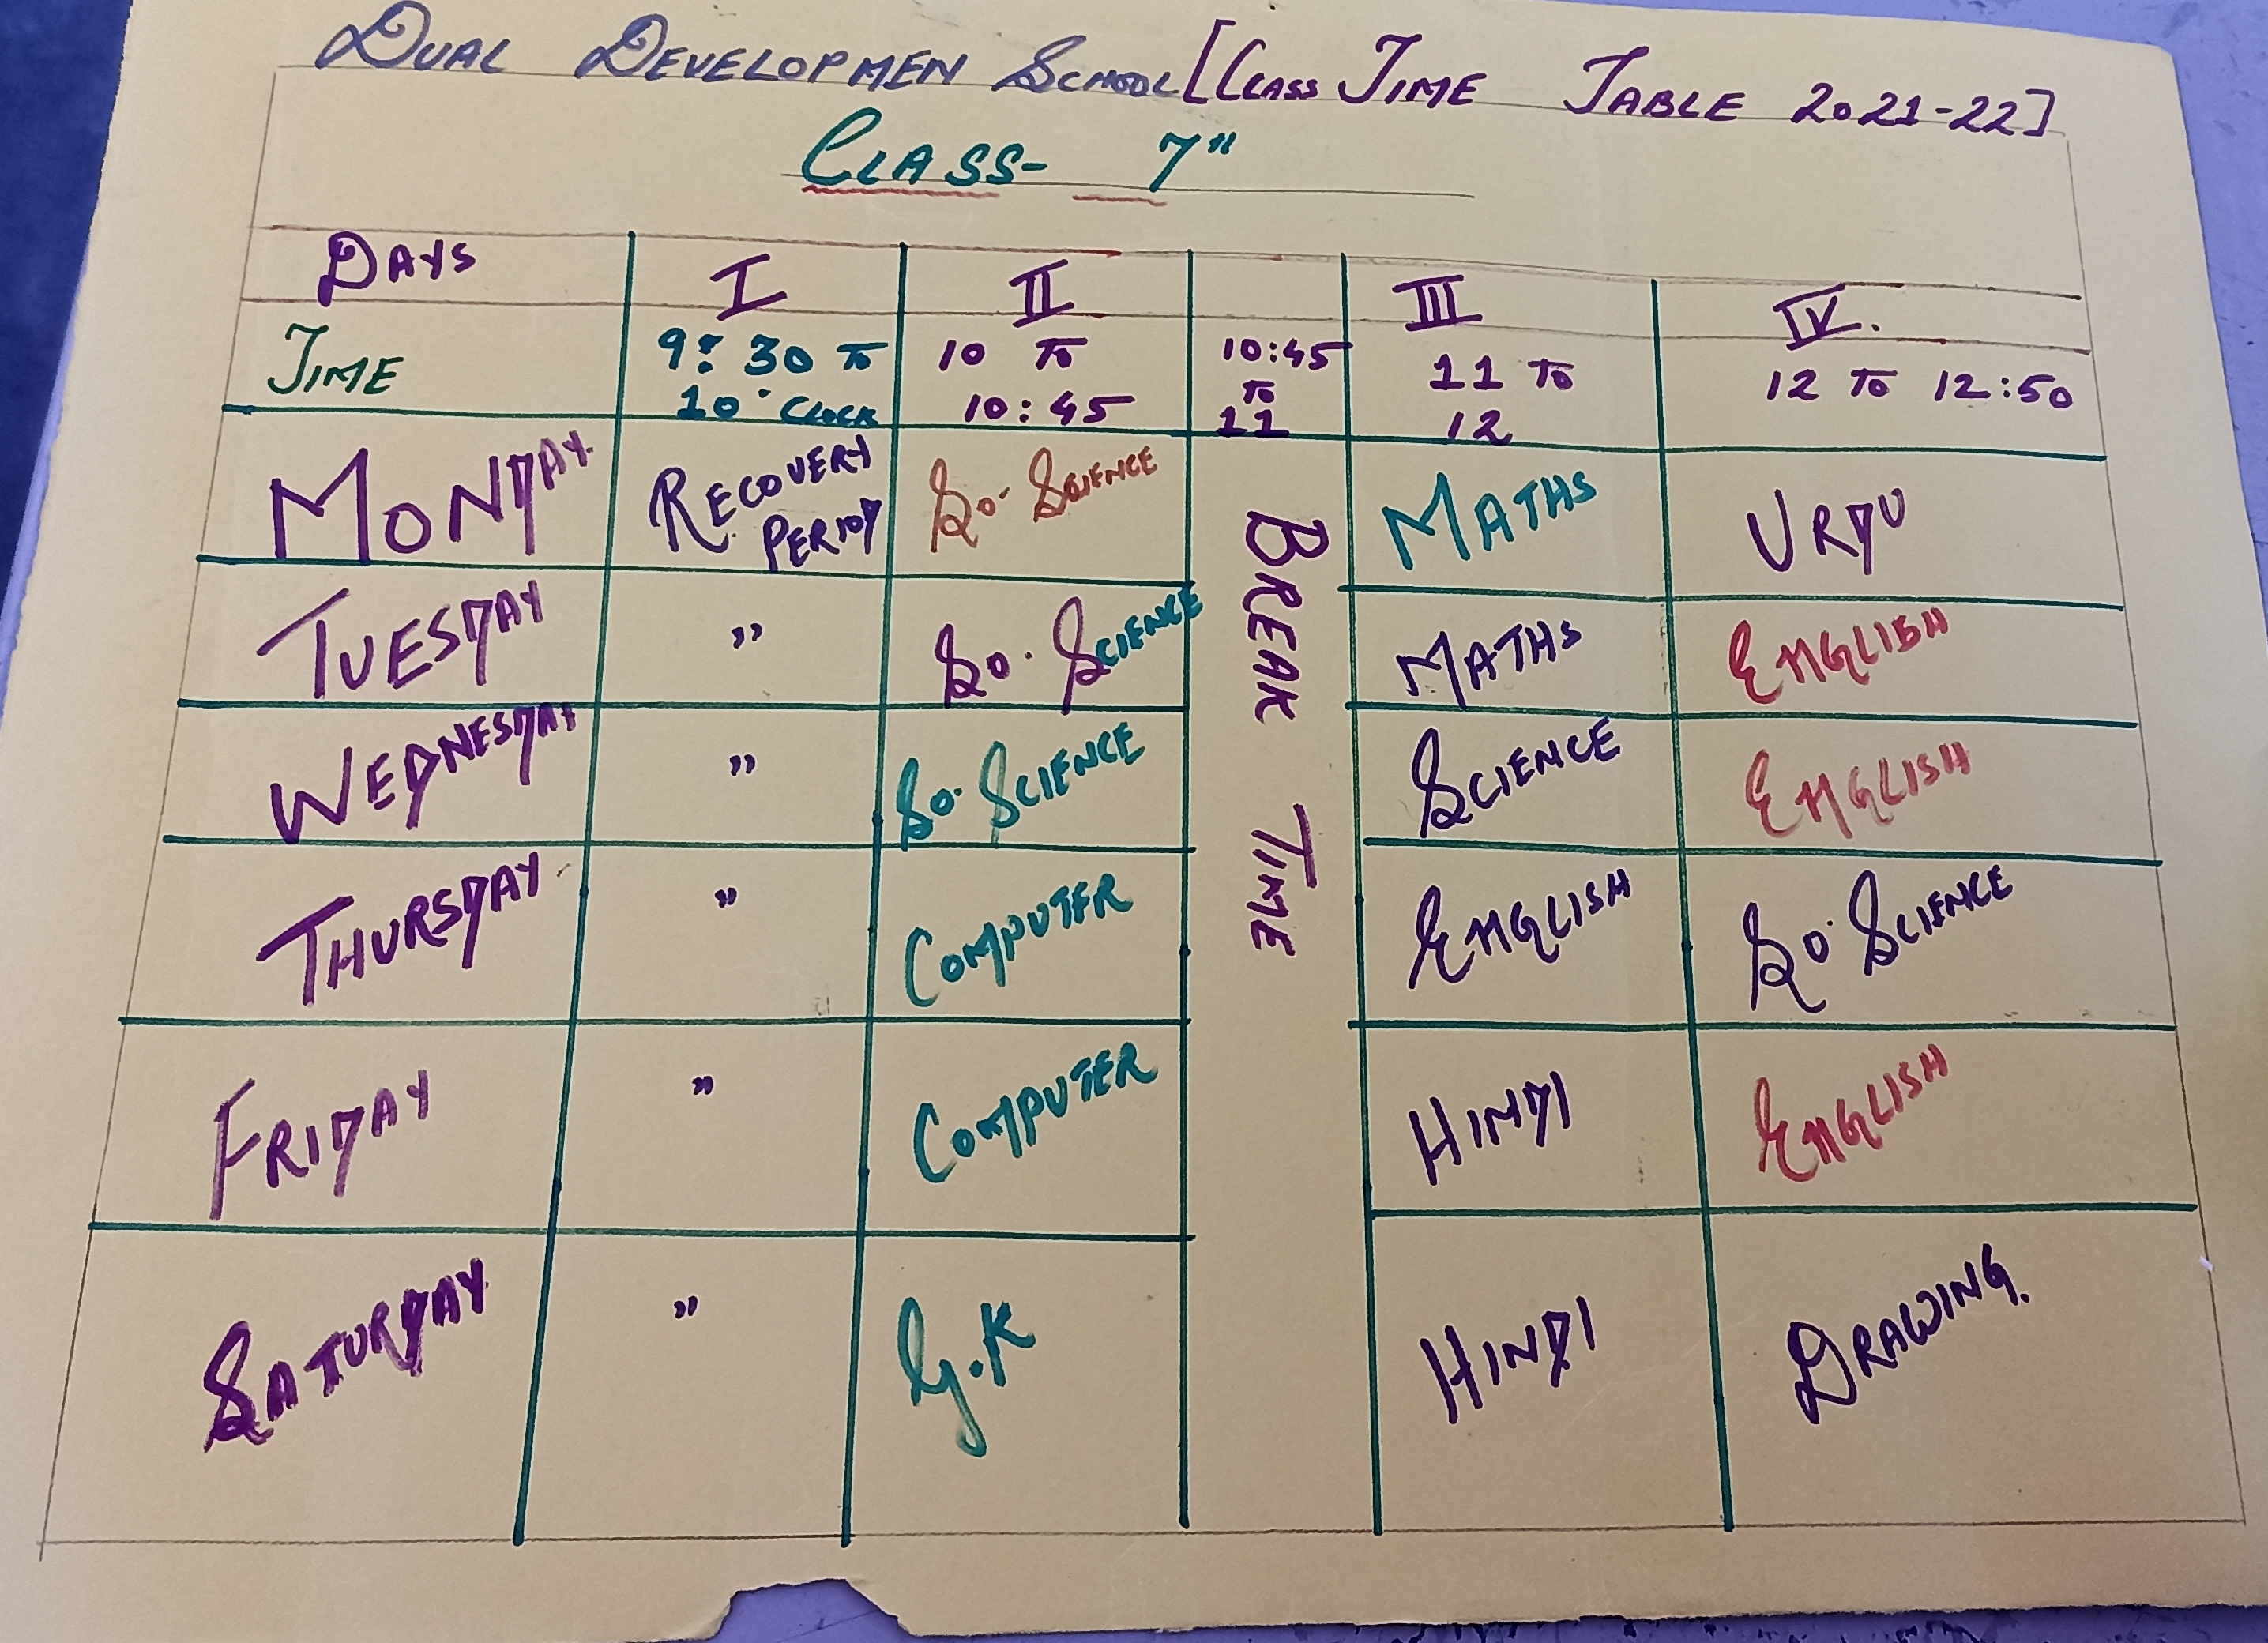 DUAL DEVELOPMEN SCHOOL [CLASS TIME TABLE 2021-22]
CLASS- 7"
DAYS I II III IV.
TIME 9:30 TO 10' CLOCK 10 TO 10:45 10:45 TO 11 11 TO 12 12 TO 12:50
MONDAY. RECOVERY PERIOD SO. SCIENCE MATHS URDU
TUESDAY " SO. SCIENCE MATHS ENGLISH
WEDNESDAY " SO. SCIENCE SCIENCE ENGLISH
THURSDAY " COMPUTER ENGLISH SO. SCIENCE
FRIDAY " COMPUTER HINDI ENGLISH
SATURDAY " G.K HINDI DRAWING.
BREAK TIME